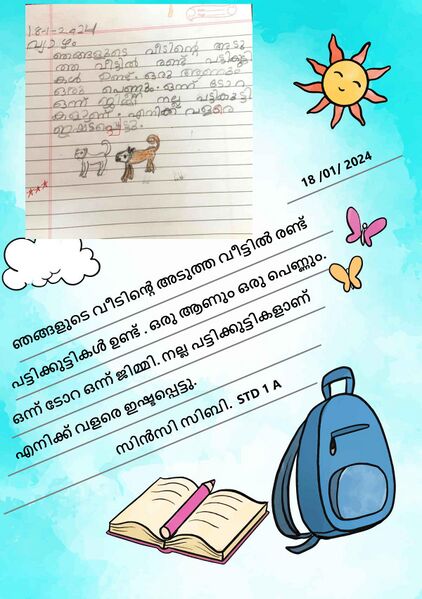 18-1-2024
വ്യാഴം
ഞങ്ങളുടെ വീടിന്റെ അടു
ത്ത വീട്ടിൽ രണ്ട് പട്ടിക്കുട്ടി
കൾ ഉണ്ട്. ഒരു ആണും
ഒരു പെണ്ണും. ഒന്ന് ടോറ
ഒന്ന് ജിമ്മി നല്ല പട്ടിക്കുട്ടി
കളാണ്. എനിക്ക് വളരെ
ഇഷ്ടപ്പെട്ടു.
18 /01/ 2024
ഞങ്ങളുടെ വീടിന്റെ അടുത്ത വീട്ടിൽ രണ്ട്
പട്ടിക്കുട്ടികൾ ഉണ്ട് . ഒരു ആണും ഒരു പെണ്ണും.
ഒന്ന് ടോറ ഒന്ന് ജിമ്മി. നല്ല പട്ടിക്കുട്ടികളാണ്
എനിക്ക് വളരെ ഇഷ്ടപ്പെട്ടു.
സിൻസി സിബി. STD 1 A